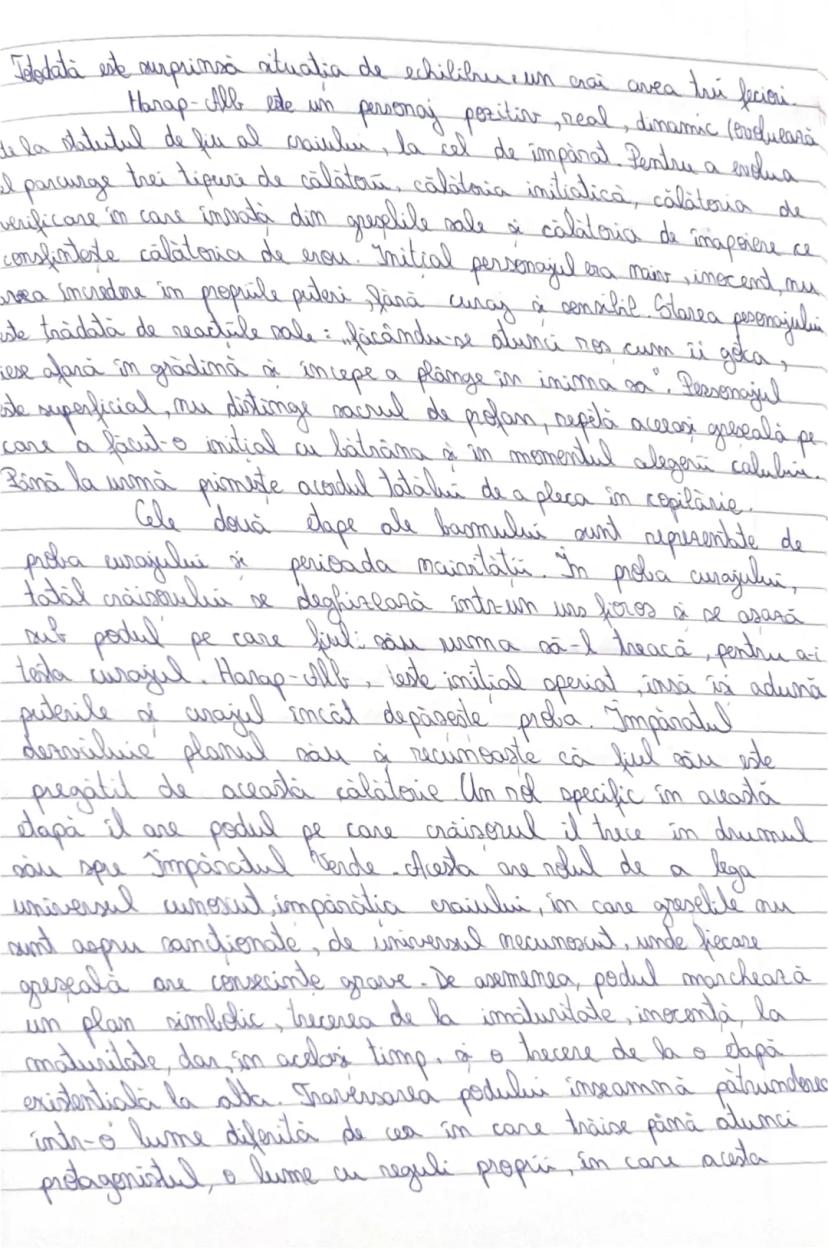 Totodată este surprinsă situația de echilibru: un crai avea trei feciori.
Harap-Alb este un personaj pozitiv, real, dinamic (evoluează
de la statutul de fiu al craiului, la cel de împărat. Pentru a evolua
el parcurge trei tipuri de călătorii, călătoria inițiatică, călătoria de
verificare în care învață din greșelile sale și călătoria de înapoiere ce
consfințește călătoria de erou. Inițial personajul era naiv, inocent, nu
avea încredere în propriile puteri, fără curaj și sensibil. Starea personajului
este trădată de reacțiile sale: „făcându-se atunci roș cum îi gotca,
iese afară în grădină și începe a plânge în inima sa". Personajul
este superficial, nu distinge sacrul de profan, repetă aceeași greșeală pe
care a făcut-o inițial cu bătrâna și în momentul alegerii calului.
Până la urmă primește acordul tatălui de a pleca în copilărie.
Cele două etape ale basmului sunt reprezentate de
proba curajului și perioada naivității. În proba curajului,
tatăl crăișorului se deghizează într-un urs fioros și se așază
sub podul pe care fiul său urma să-l treacă, pentru a-i
testa curajul. Harap-Alb, este inițial speriat, însă își adună
puterile și curajul încât depășește proba. Împăratul
dezvăluie planul său și recunoaște că fiul său este
pregătit de această călătorie. Un rol specific în această
etapă îl are podul pe care crăișorul îl trece în drumul
său spre Împăratul Verde. Acesta are rolul de a lega
universul cunoscut, împărăția craiului, în care greșelile nu
sunt aspru sancționate, de universul necunoscut, unde fiecare
greșeală are consecințe grave. De asemenea, podul marchează
un plan simbolic, trecerea de la imaturitate, inocență, la
maturitate, dar, în același timp, și o trecere de la o etapă
existențială la alta. Traversarea podului înseamnă pătrunderea
într-o lume diferită de cea în care trăise până atunci
protagonistul, o lume cu reguli proprii, în care acesta